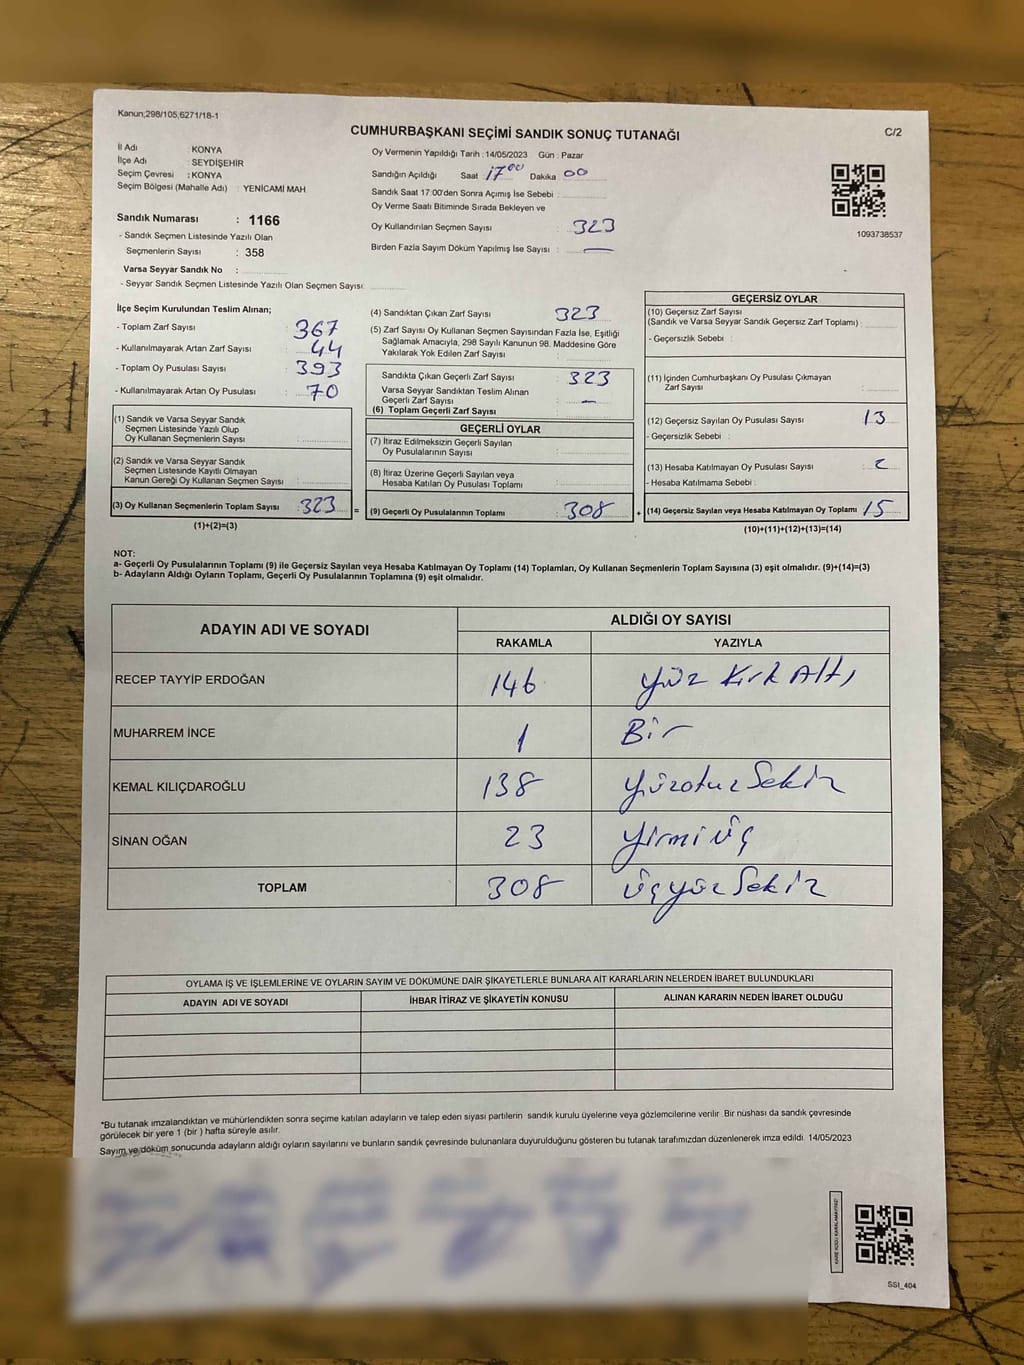 Kanun;298/105,6271/18-1
CUMHURBAŞKANI SEÇİMİ SANDIK SONUÇ TUTANAĞI
C/2
İl Adı : KONYA
İlçe Adı : SEYDİŞEHİR
Seçim Çevresi : KONYA
Seçim Bölgesi (Mahalle Adı) : YENİCAMİ MAH
Sandık Numarası : 1166
- Sandık Seçmen Listesinde Yazılı Olan
Seçmenlerin Sayısı : 358
Varsa Seyyar Sandık No :
- Seyyar Sandık Seçmen Listesinde Yazılı Olan Seçmen Sayısı:
Oy Vermenin Yapıldığı Tarih : 14/05/2023 Gün : Pazar
Sandığın Açıldığı Saat 17 00 Dakika 00
Sandık Saat 17:00'den Sonra Açımış İse Sebebi :
Oy Verme Saati Bitiminde Sırada Bekleyen ve
Oy Kullandırılan Seçmen Sayısı : 323
Birden Fazla Sayım Döküm Yapılmış İse Sayısı : —
1093738537
İlçe Seçim Kurulundan Teslim Alınan;
- Toplam Zarf Sayısı : 367
- Kullanılmayarak Artan Zarf Sayısı : 44
- Toplam Oy Pusulası Sayısı : 393
- Kullanılmayarak Artan Oy Pusulası : 70
(1) Sandık ve Varsa Seyyar Sandık
Seçmen Listesinde Yazılı Olup
Oy Kullanan Seçmenlerin Sayısı :
(2) Sandık ve Varsa Seyyar Sandık
Seçmen Listesinde Kayıtlı Olmayan
Kanun Gereği Oy Kullanan Seçmen Sayısı :
(3) Oy Kullanan Seçmenlerin Toplam Sayısı : 323 =
(1)+(2)=(3)
(4) Sandıktan Çıkan Zarf Sayısı : 323
(5) Zarf Sayısı Oy Kullanan Seçmen Sayısından Fazla İse, Eşitliği
Sağlamak Amacıyla, 298 Sayılı Kanunun 98. Maddesine Göre
Yakılarak Yok Edilen Zarf Sayısı :
Sandıkta Çıkan Geçerli Zarf Sayısı : 323
Varsa Seyyar Sandıktan Teslim Alınan
Geçerli Zarf Sayısı : —
(6) Toplam Geçerli Zarf Sayısı
GEÇERLİ OYLAR
(7) İtiraz Edilmeksizin Geçerli Sayılan
Oy Pusulalarının Sayısı :
(8) İtiraz Üzerine Geçerli Sayılan veya
Hesaba Katılan Oy Pusulası Toplamı :
(9) Geçerli Oy Pusulalarının Toplamı : 308 +
GEÇERSİZ OYLAR
(10) Geçersiz Zarf Sayısı
(Sandık ve Varsa Seyyar Sandık Geçersiz Zarf Toplamı) :
- Geçersizlik Sebebi :
(11) İçinden Cumhurbaşkanı Oy Pusulası Çıkmayan
Zarf Sayısı :
(12) Geçersiz Sayılan Oy Pusulası Sayısı : 13
- Geçersizlik Sebebi :
(13) Hesaba Katılmayan Oy Pusulası Sayısı : 2
- Hesaba Katılmama Sebebi :
(14) Geçersiz Sayılan veya Hesaba Katılmayan Oy Toplamı : 15
(10)+(11)+(12)+(13)=(14)
NOT:
a- Geçerli Oy Pusulalarının Toplamı (9) ile Geçersiz Sayılan veya Hesaba Katılmayan Oy Toplamı (14) Toplamları, Oy Kullanan Seçmenlerin Toplam Sayısına (3) eşit olmalıdır. (9)+(14)=(3)
b- Adayların Aldığı Oyların Toplamı, Geçerli Oy Pusulalarının Toplamına (9) eşit olmalıdır.
ADAYIN ADI VE SOYADI
ALDIĞI OY SAYISI
RAKAMLA YAZIYLA
RECEP TAYYİP ERDOĞAN 146 Yüz Kırk Altı
MUHARREM İNCE 1 Bir
KEMAL KILIÇDAROĞLU 138 Yüzotuz Sekiz
SİNAN OĞAN 23 Yirmi üç
TOPLAM 308 üçyüz Sekiz
OYLAMA İŞ VE İŞLEMLERİNE VE OYLARIN SAYIM VE DÖKÜMÜNE DAİR ŞİKAYETLERLE BUNLARA AİT KARARLARIN NELERDEN İBARET BULUNDUKLARI
ADAYIN ADI VE SOYADI İHBAR İTİRAZ VE ŞİKAYETİN KONUSU ALINAN KARARIN NEDEN İBARET OLDUĞU
*Bu tutanak imzalandıktan ve mühürlendikten sonra seçime katılan adayların ve talep eden siyasi partilerin sandık kurulu üyelerine veya gözlemcilerine verilir. Bir nüshası da sandık çevresinde
görülecek bir yere 1 (bir ) hafta süreyle asılır.
Sayım ve döküm sonucunda adayların aldığı oyların sayılarını ve bunların sandık çevresinde bulunanlara duyurulduğunu gösteren bu tutanak tarafımızdan düzenlenerek imza edildi. 14/05/2023
KARE KODU KARALAMAYINIZ!
SSI_404